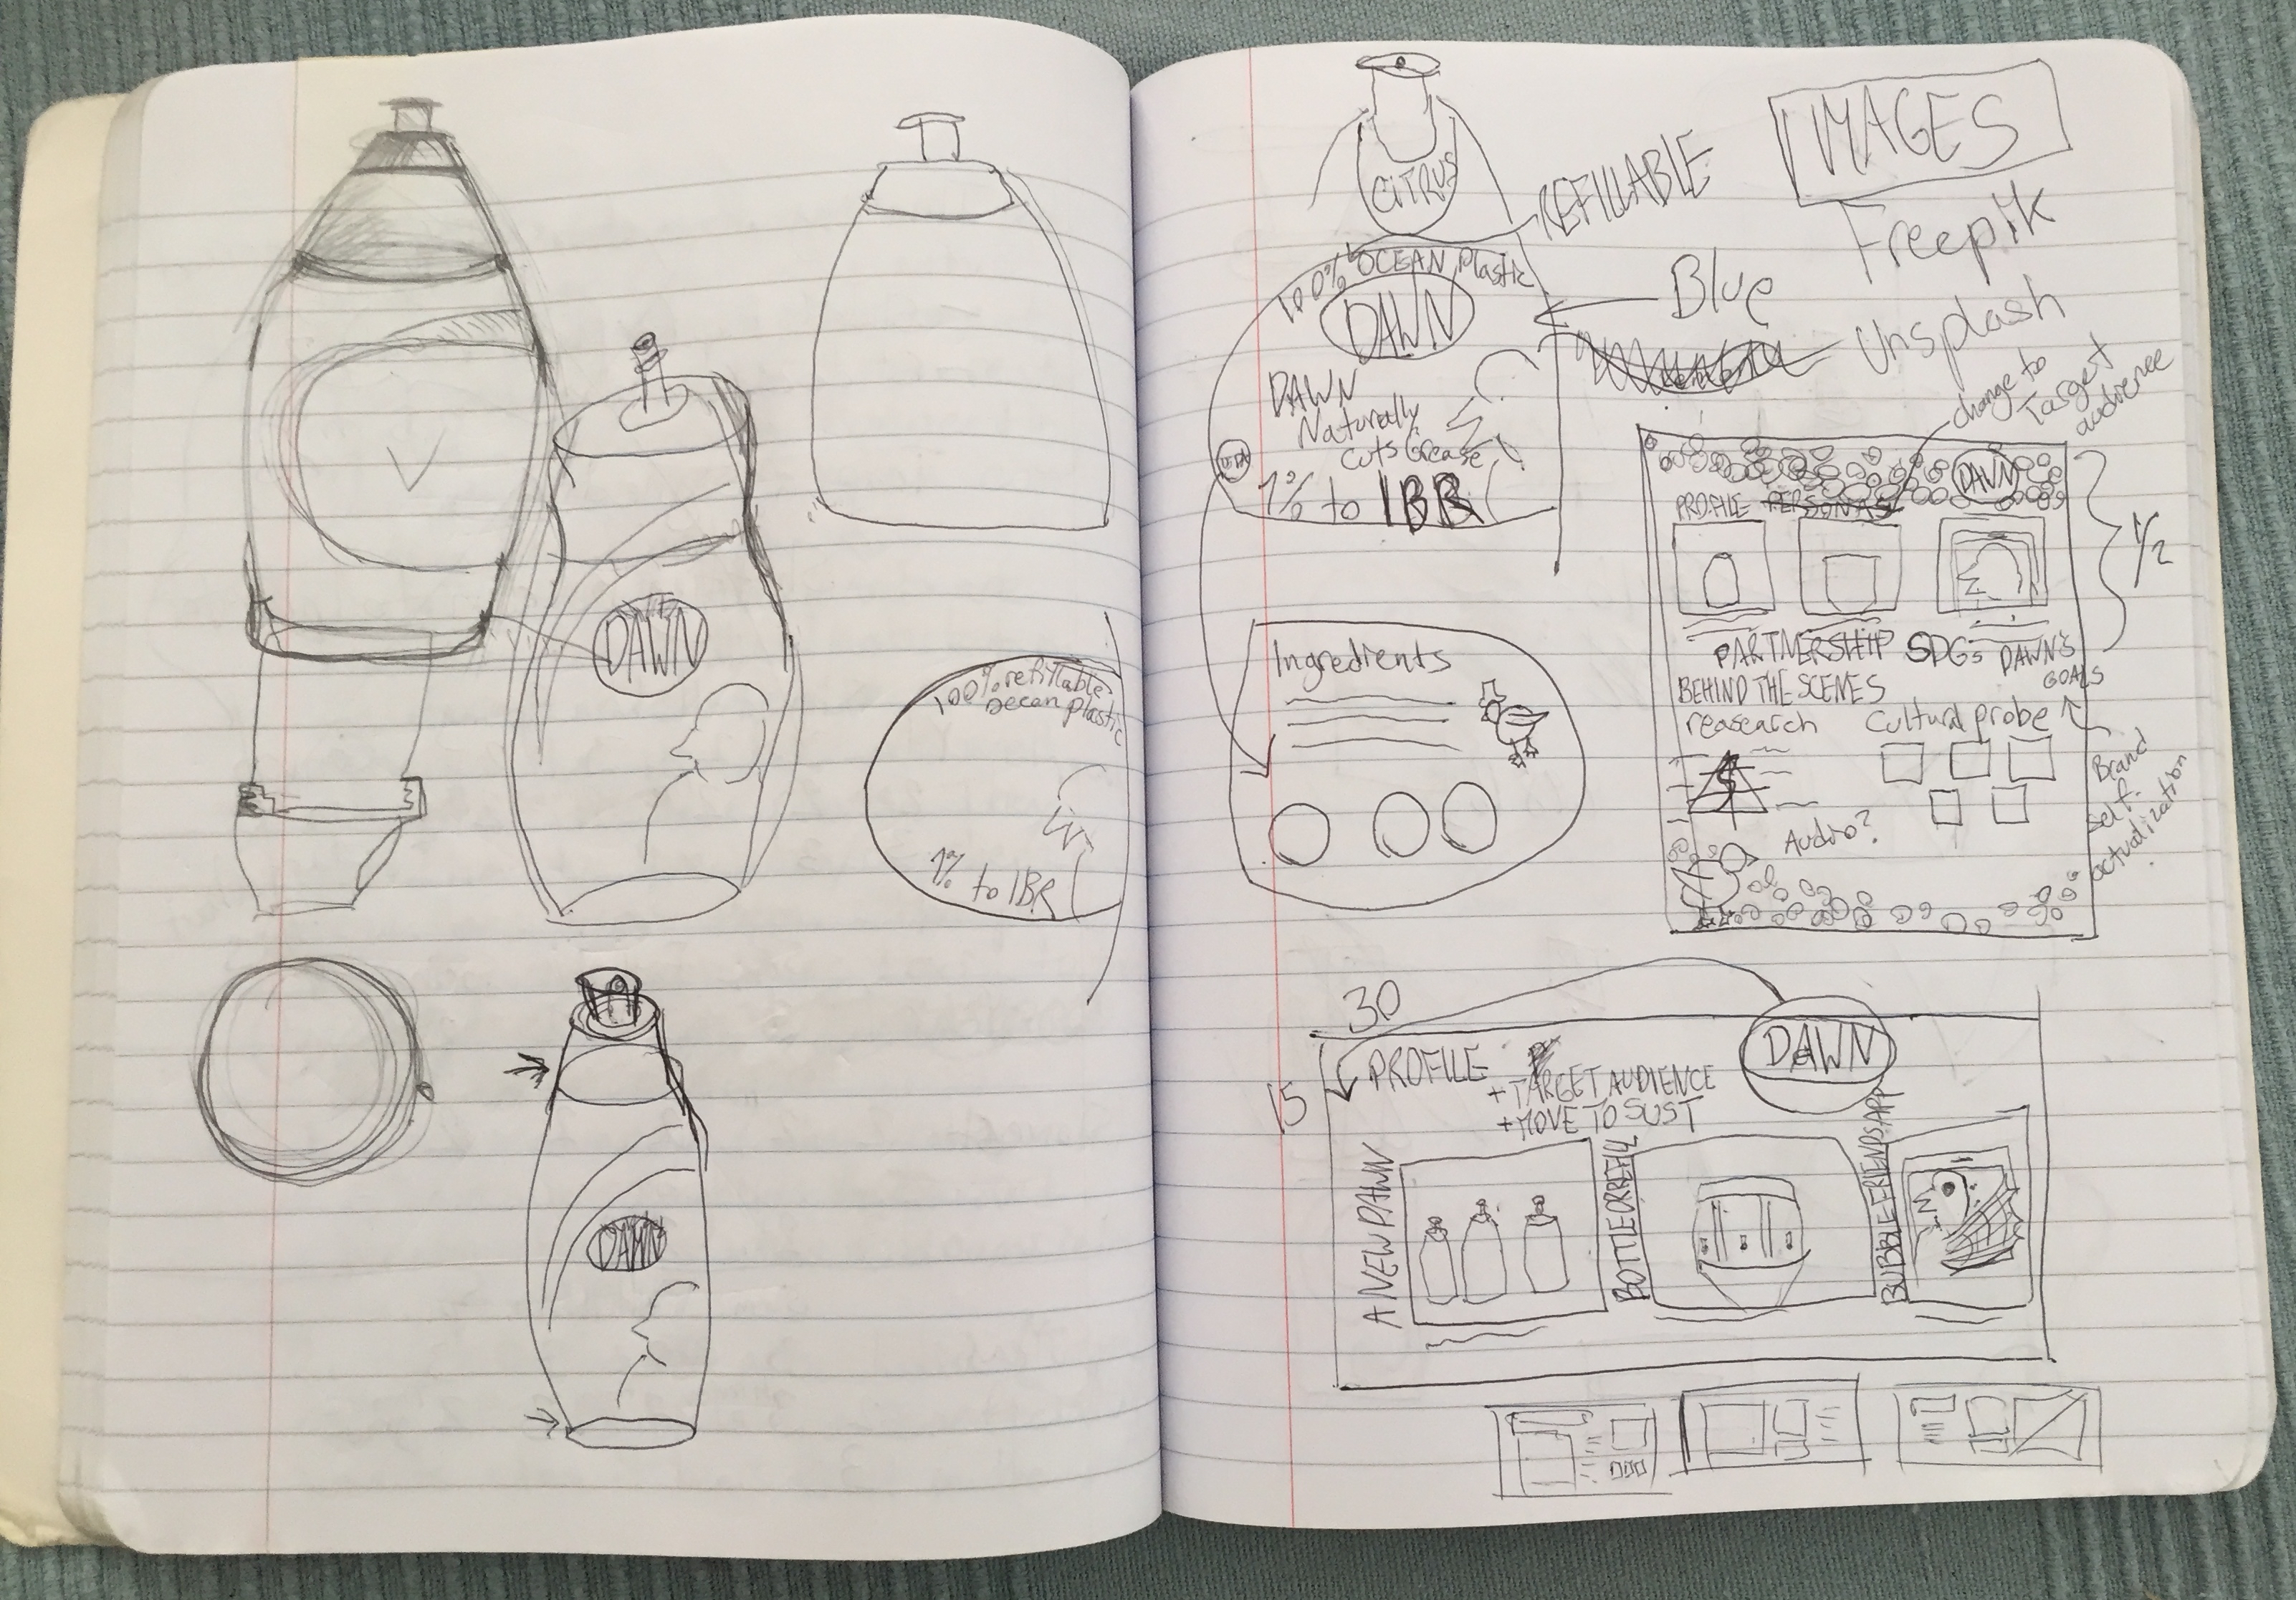 DAWN
100% refillable
Ocean plastic
1% to IBR
DAWN
CITRUS
REFILLABLE
IMAGES
Freepik
Unsplash
Blue
100% OCEAN Plastic
DAWN
DAWN
Naturally
cuts Grease
1% to IBR
Ingredients
change to
Target
audience
DAWN
PROFILE PERSONAS
1/2
PARTNERSHIP SDGs DAWN'S
GOALS
BEHIND THE SCENES
reasearch Cultural probe
Brand
self-
actualization
$
Audio?
30
15
DAWN
PROFILE
+ TARGET AUDIENCE
+ MOVE TO SUST
A NEW DAWN
BOTTLE OR REFILL
BUBBLE FRIENDS APP